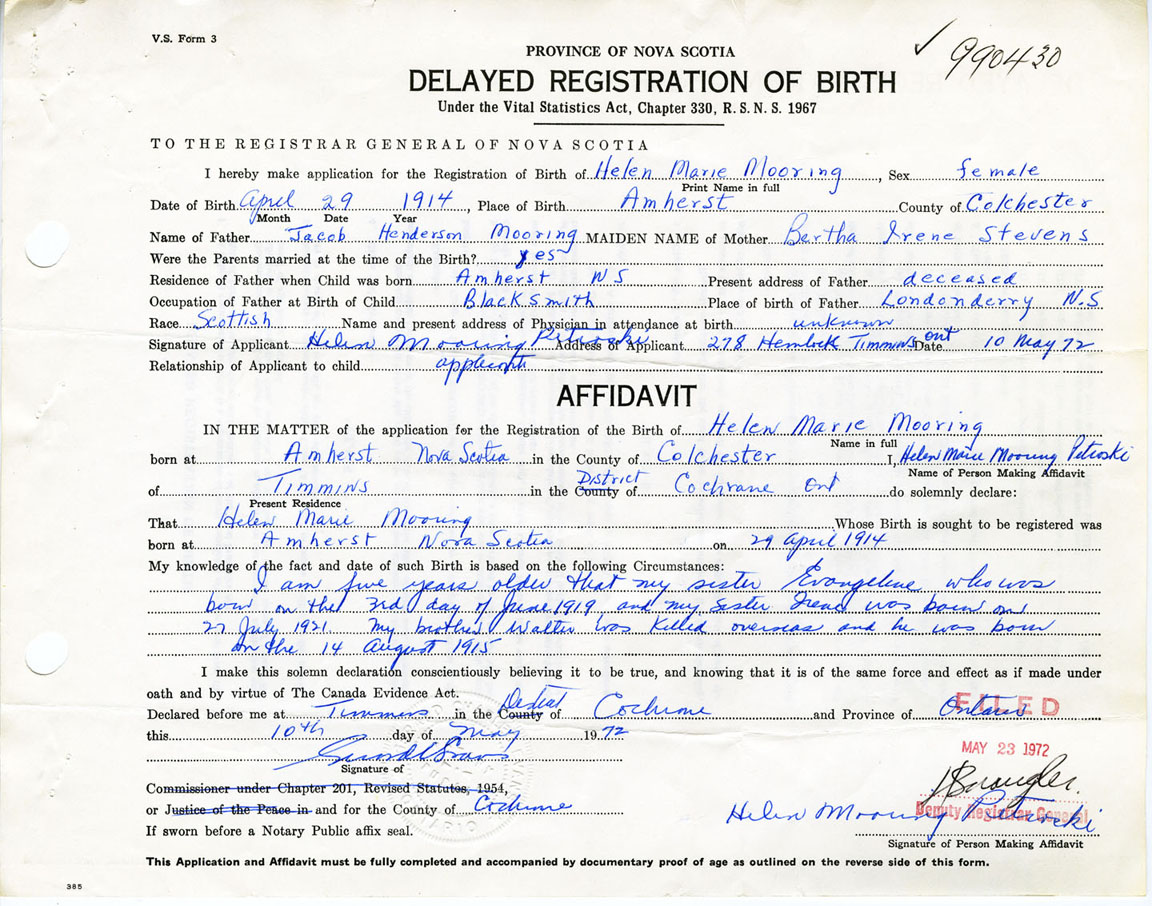 V.S. Form 3
✓ 990430
PROVINCE OF NOVA SCOTIA
DELAYED REGISTRATION OF BIRTH
Under the Vital Statistics Act, Chapter 330, R. S. N. S. 1967
TO THE REGISTRAR GENERAL OF NOVA SCOTIA
I hereby make application for the Registration of Birth of Helen Marie Mooring, Sex female
Print Name in full
Date of Birth April 29 1914, Place of Birth Amherst County of Colchester
Month Date Year
Name of Father Jacob Henderson Mooring MAIDEN NAME of Mother Bertha Irene Stevens
Were the Parents married at the time of the Birth? yes
Residence of Father when Child was born Amherst NS Present address of Father deceased
Occupation of Father at Birth of Child Blacksmith Place of birth of Father Londonderry N.S
Race Scottish Name and present address of Physician in attendance at birth unknown
Signature of Applicant Helen Mooring Petroski Address of Applicant 278 Hemlock Timmins ont Date 10 May 72
Relationship of Applicant to child applicant
AFFIDAVIT
IN THE MATTER of the application for the Registration of the Birth of Helen Marie Mooring
Name in full
born at Amherst Nova Scotia in the County of Colchester I, Helen Marie Mooring Petroski
Name of Person Making Affidavit
of Timmins in the County District of Cochrane Ont do solemnly declare:
Present Residence
That Helen Marie Mooring Whose Birth is sought to be registered was
born at Amherst Nova Scotia on 29 April 1914
My knowledge of the fact and date of such Birth is based on the following Circumstances:
I am five years older that my sister Evangeline who was
born on the 3rd day of June 1919 and my sister Irene was born on
27 July 1921. My brother Walter was killed overseas and he was born
on the 14 August 1915
I make this solemn declaration conscientiously believing it to be true, and knowing that it is of the same force and effect as if made under
oath and by virtue of The Canada Evidence Act.
Declared before me at Timmins in the County District of Cochrane and Province of Ontario
FILED
this 10th day of May 1972
MAY 23 1972
Signature of
Commissioner under Chapter 201, Revised Statutes, 1954,
or Justice of the Peace in and for the County of Cochrane
Deputy Registrar General
Helen Mooring Petroski
If sworn before a Notary Public affix seal.
Signature of Person Making Affidavit
This Application and Affidavit must be fully completed and accompanied by documentary proof of age as outlined on the reverse side of this form.
385